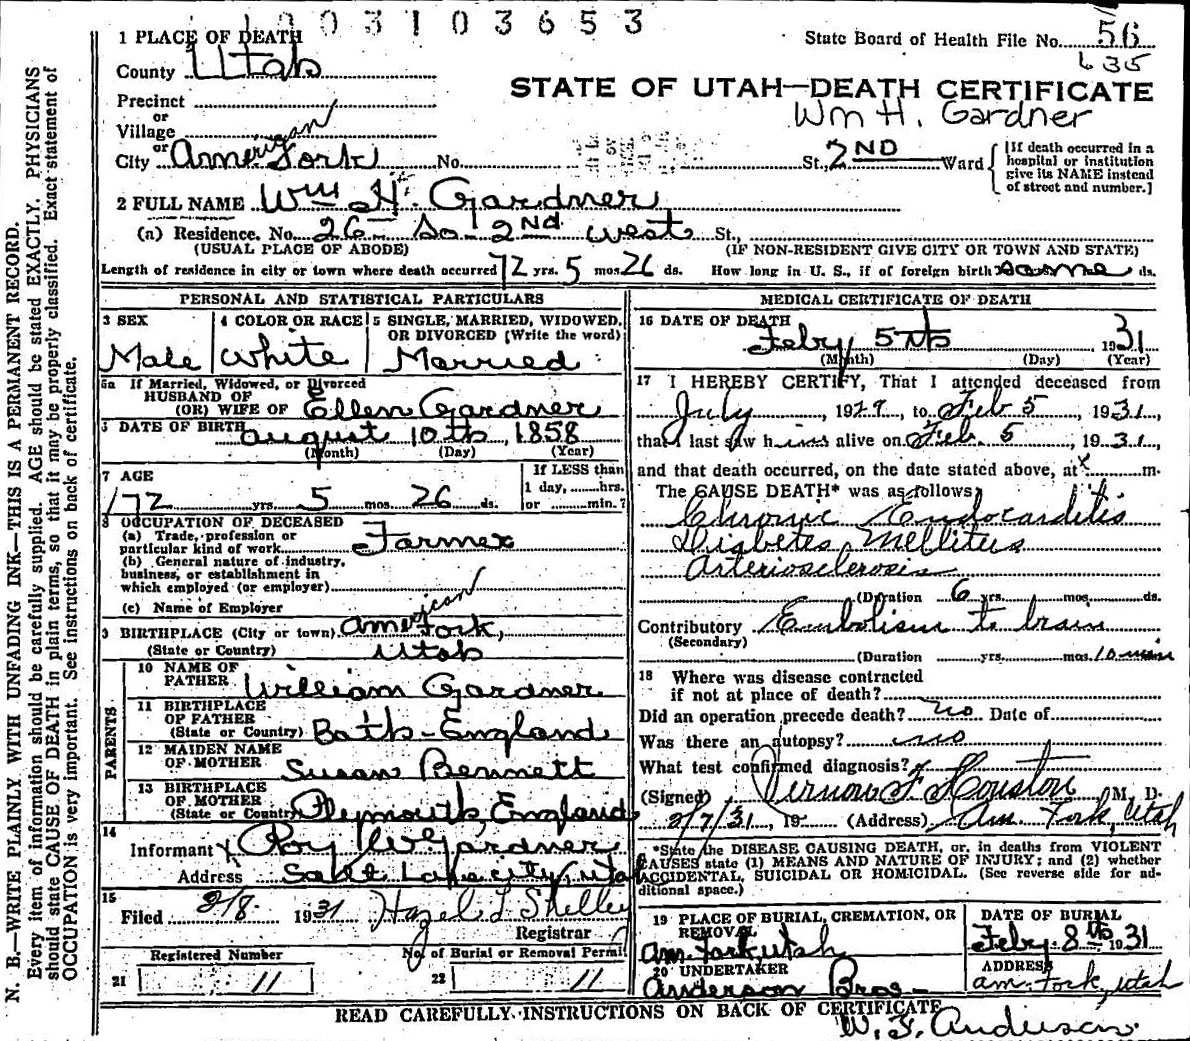 1003103653
1 PLACE OF DEATH
State Board of Health File No. 56
635
County Utah
STATE OF UTAH—DEATH CERTIFICATE
Wm H. Gardner
Precinct
or
Village
or
City American Fork No. St., 2ND Ward
[If death occurred in a hospital or institution give its NAME instead of street and number.]
2 FULL NAME Wm H. Gardner
(a) Residence. No. 26 So 2nd west St.,
(USUAL PLACE OF ABODE) (IF NON-RESIDENT GIVE CITY OR TOWN AND STATE)
Length of residence in city or town where death occurred 72 yrs. 5 mos. 26 ds. How long in U. S., if of foreign birth same ds.
PERSONAL AND STATISTICAL PARTICULARS
3 SEX
Male
4 COLOR OR RACE
White
5 SINGLE, MARRIED, WIDOWED, OR DIVORCED (Write the word)
Married
5a If Married, Widowed, or Divorced
HUSBAND OF
(OR) WIFE OF Ellen Gardner
DATE OF BIRTH August 10th, 1858
(Month) (Day) (Year)
7 AGE
72 yrs. 5 mos. 26 ds.
If LESS than
1 day, hrs.
or min.?
8 OCCUPATION OF DECEASED
(a) Trade, profession or
particular kind of work Farmer
(b) General nature of industry,
business, or establishment in
which employed (or employer)
(c) Name of Employer
9 BIRTHPLACE (City or town) American Fork,
(State or Country) Utah
PARENTS
10 NAME OF
FATHER William Gardner
11 BIRTHPLACE
OF FATHER
(State or Country) Bath-England
12 MAIDEN NAME
OF MOTHER Susan Bennett
13 BIRTHPLACE
OF MOTHER
(State or Country) Plymouth, England
14
Informant Roy W Gardner
Address Salt Lake City, Utah
15
Filed 2/8 1931 Hazel L Shelley
Registrar
Registered Number
21 11
No. of Burial or Removal Permit
22 11
MEDICAL CERTIFICATE OF DEATH
16 DATE OF DEATH
Feby 5th 1931
(Month) (Day) (Year)
17 I HEREBY CERTIFY, That I attended deceased from
July, 1929, to Feb 5, 1931,
that I last saw him alive on Feb. 5, 1931,
and that death occurred, on the date stated above, at m.
The CAUSE DEATH* was as follows:
Chronic Endocarditis
Diabetes Mellitus
Arteriosclerosis
(Duration 6 yrs. mos. ds.
Contributory Embolism to brain
(Secondary)
(Duration yrs. mos. 10 min
18 Where was disease contracted
if not at place of death?
Did an operation precede death? no Date of
Was there an autopsy? no
What test confirmed diagnosis?
(Signed) Vernon F Houston M. D.
2/7/31, 19 (Address) Am. Fork, Utah
*State the DISEASE CAUSING DEATH, or, in deaths from VIOLENT
CAUSES state (1) MEANS AND NATURE OF INJURY; and (2) whether
ACCIDENTAL, SUICIDAL OR HOMICIDAL. (See reverse side for ad-
ditional space.)
19 PLACE OF BURIAL, CREMATION, OR
REMOVAL
Am. Fork, Utah
DATE OF BURIAL
Feby. 8th 1931
20 UNDERTAKER
Anderson Bros-
ADDRESS
am. Fork, Utah
READ CAREFULLY INSTRUCTIONS ON BACK OF CERTIFICATE
W. F. Anderson.
N. B.—WRITE PLAINLY WITH UNFADING INK—THIS IS A PERMANENT RECORD.
Every item of information should be carefully supplied. AGE should be stated EXACTLY. PHYSICIANS
should state CAUSE OF DEATH in plain terms, so that it may be properly classified. Exact statement of
OCCUPATION is very important. See instructions on back of certificate.